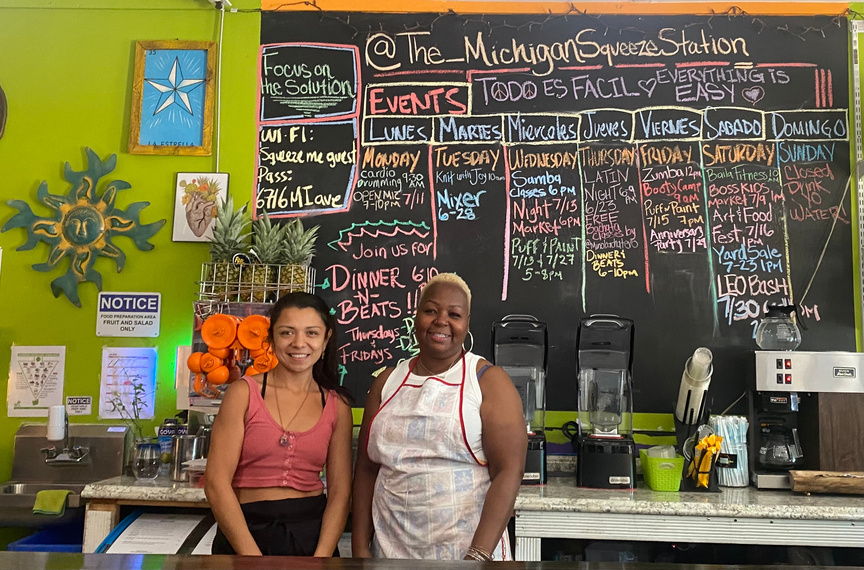 @The_MichiganSqueezeStation
TODO ES FACIL EVERYTHING IS EASY
Focus on
the Solution
EVENTS
WI-FI:
Squeeze me guest
Pass:
6716MIAve
LUNES MARTES Miercoles Jueves VIERNES SABADO DOMINGO
MONDAY
cardio
drumming 9:30 AM
OPEN MIC 7/11
7-10PM
TUESDAY
Knit with Joy 10am
Mixer
6-28
WEDNESDAY
Samba
Classes 6 PM
Night 7/13
Market 6PM
PUFF & PAINT
7/13 & 7/27
5-8pm
THURSDAY
LATIN
NIGHT 6-9
6/23 PM
FREE
Bachata
Classes by
DINNER &
BEATS
6-10pm
FRIDAY
Zumba 12pm
Booty Camp
9AM
Puff & Paint
7/15 7PM
Anniversary
Party 7/29
SATURDAY
Baila Fitness 10
BOSS KIDS
Market 7/9 1PM
Art & Food
Fest 7/16
1PM
Yard Sale
7-23 1PM
LEO Bash
7/30
SUNDAY
Closed
Drink
YO
WATER!
Join us for
DINNER 6-10
-N-
BEATS !!
Thursdays
&
FRIDAYS
LA ESTRELLA
NOTICE
FOOD PREPARATION AREA
FRUIT AND SALAD
ONLY
NOTICE